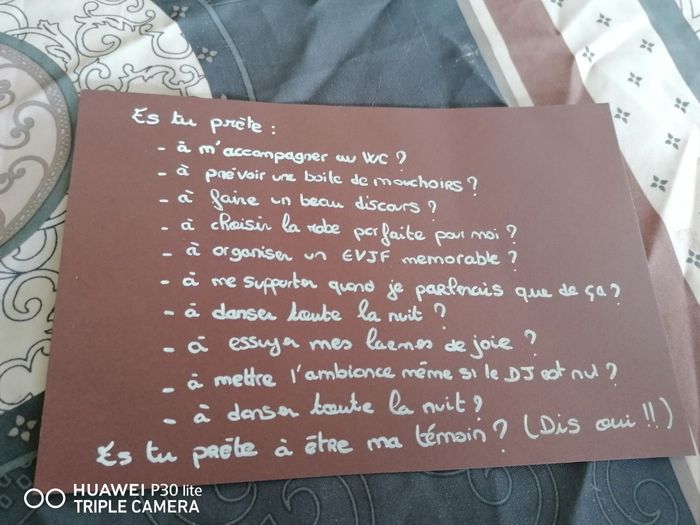 Es tu prête :
- à m'accompagner au WC ?
- à prévoir une boite de mouchoirs ?
- à faire un beau discours ?
- à choisir la robe parfaite pour moi ?
- à organiser un EVJF memorable ?
- à me supporter quand je parlerais que de ça ?
- à danser toute la nuit ?
- à essuyer mes larmes de joie ?
- à mettre l'ambiance même si le DJ est nul ?
- à danser toute la nuit ?
Es tu prête à être ma témoin ? (Dis oui !!)
HUAWEI P30 lite
TRIPLE CAMERA